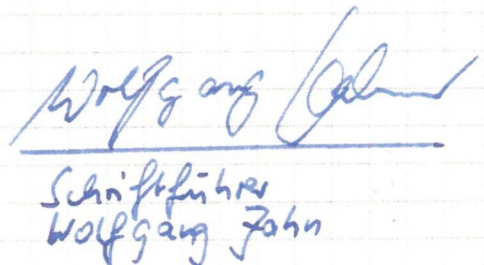 Wolfgang Zahn
Schriftführer
Wolfgang Zahn